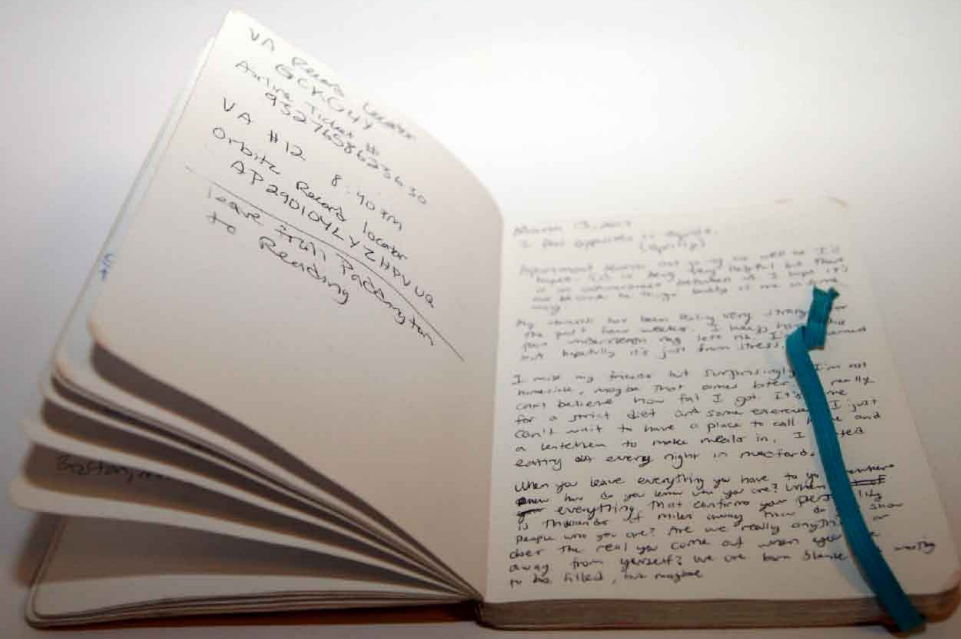 VA Record Locator
GCKG4Y
Airline Ticket #
9327658623630
VA #12 8:40 PM
Orbitz Record locator
AP290104LYZHPVUQ
leave from Paddington
to Reading
Boston,
March 13,
I feel opposite to
Apartment search not going as well as I'd
hoped. is being very helpful but that
it's
may
My stomach has been feeling very strange for
the past few weeks. I keep this
pain underneath my left rib. I'm
but hopefully it's just from stress
I miss my friends but surprisingly I'm not
homesick, maybe that comes later. I really
can't believe how fat I got. It's time
for a strict diet and some exercise. I just
can't wait to have a place to call home and
a kitchen to make meals in. I
eating out every night in Medford.
When you leave everything you have to go
how do you know who you are? When
everything that confirms your personality
is thousands of miles away how do show
people who you are? Are we really anything or
does the real you come out when you
away from yourself? We are born blank waiting
to be filled, but maybe